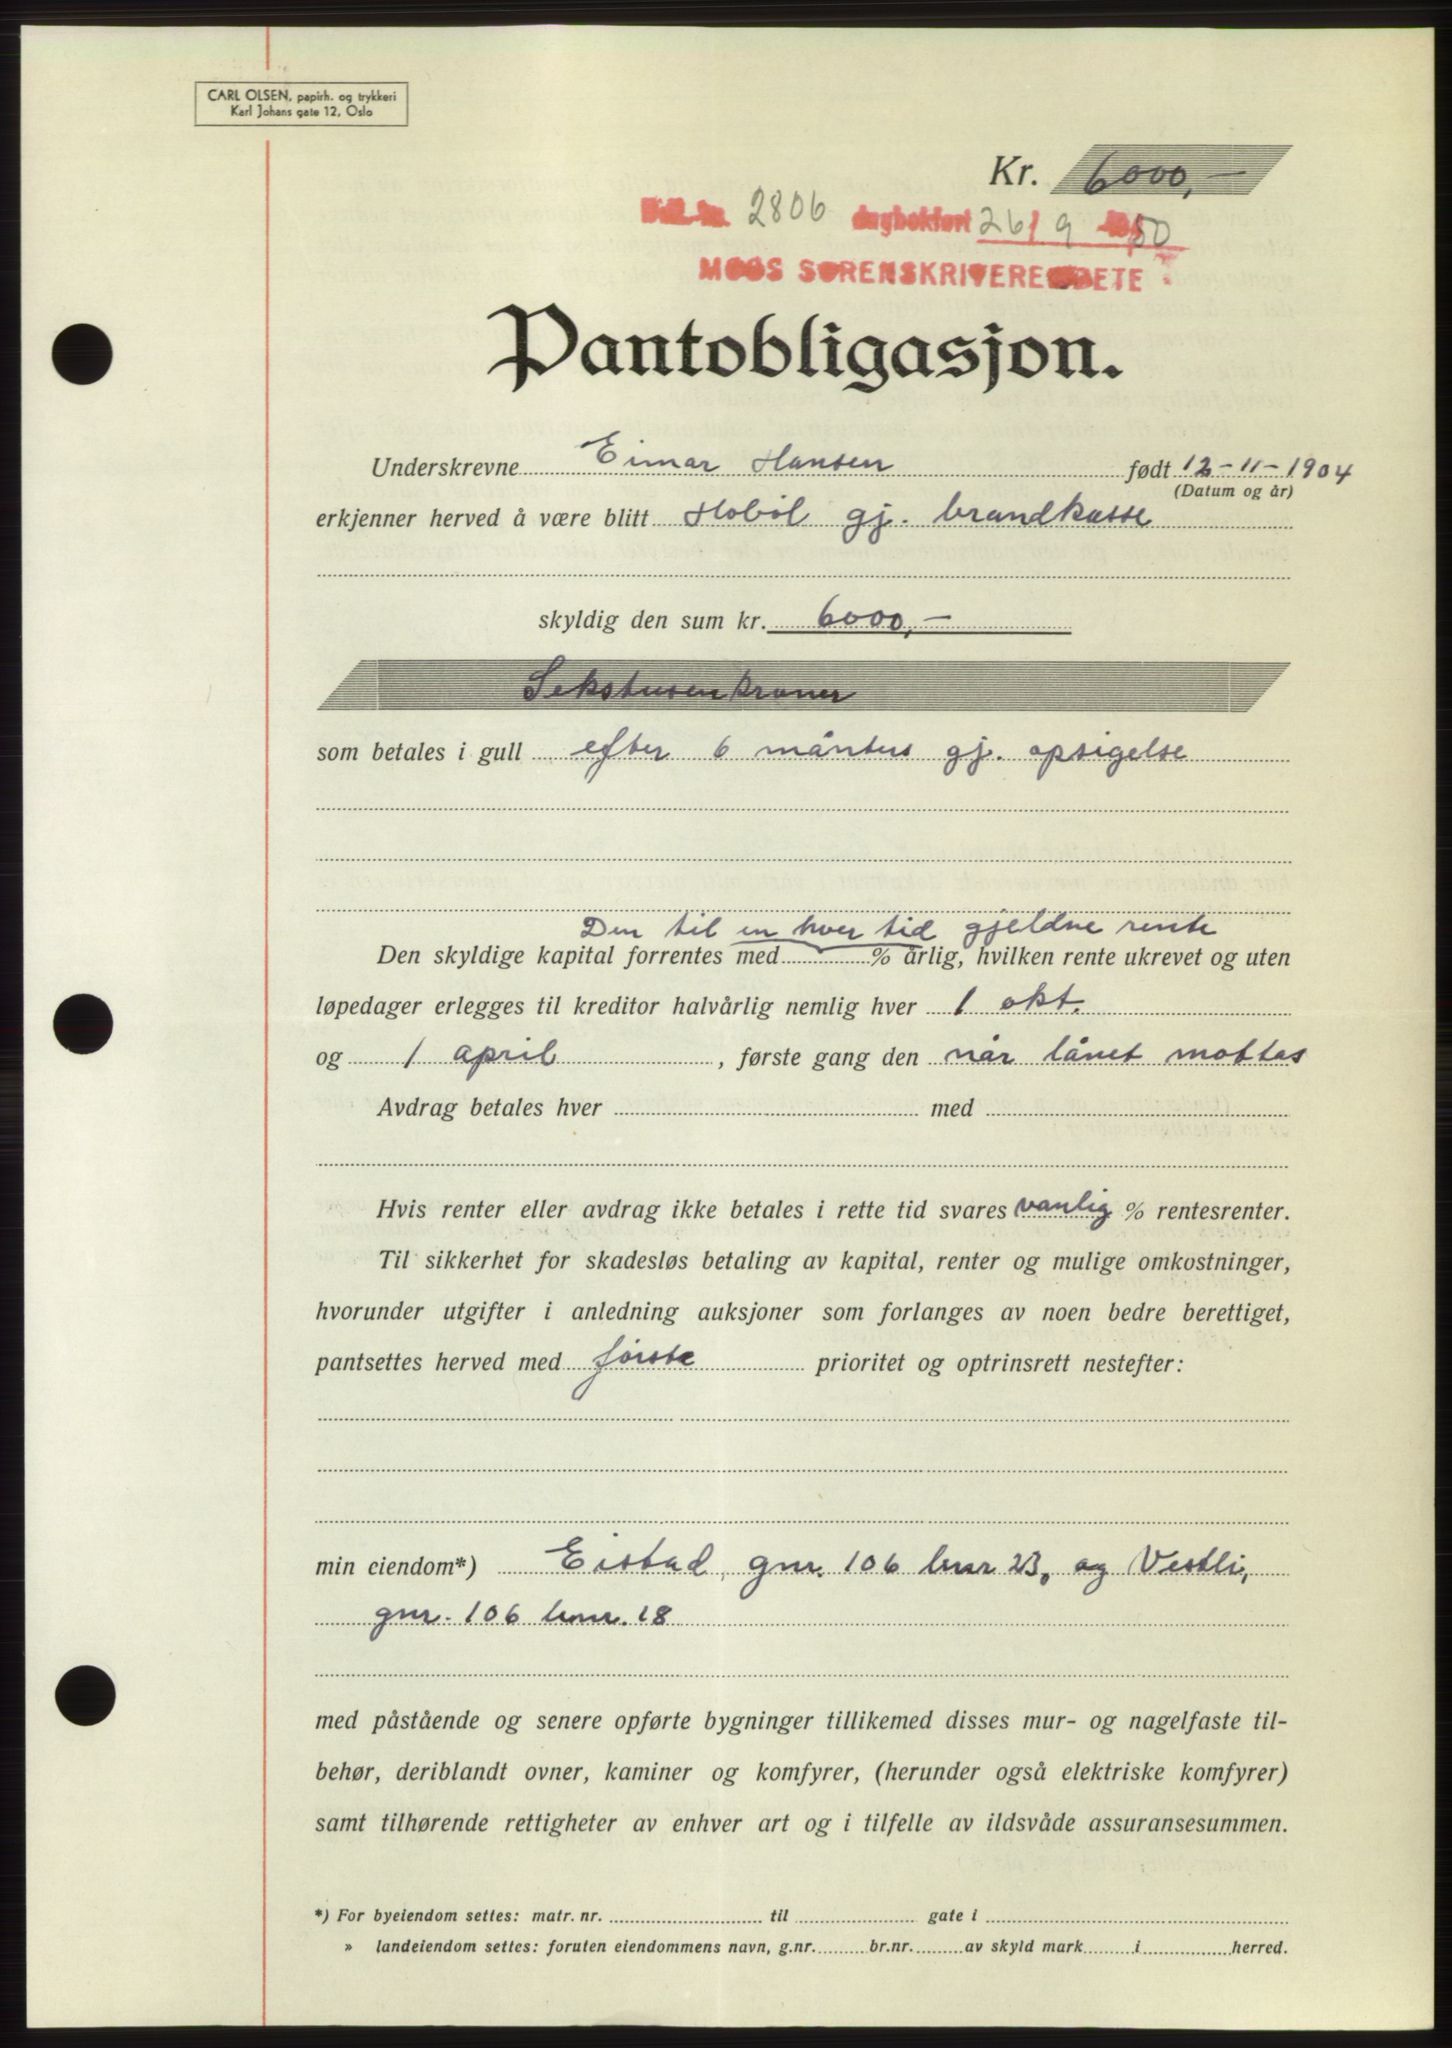 CARL OLSEN, papirh. og trykkeri
Karl Johans gate 12, Oslo
Kr. 6000,-
2806 dagbokført 26/9 1950
MOSS SORENSKRIVEREMBETE
Pantobligasjon.
Underskrevne Einar Hansen født 12-11-1904
(Datum og år)
erkjenner herved å være blitt Hobøl gj. brandkasse
skyldig den sum kr. 6000,-
Sekstusen kroner
som betales i gull efter 6 månters gj. opsigelse
Den til en hver tid gjeldne rente
Den skyldige kapital forrentes med % årlig, hvilken rente ukrevet og uten
løpedager erlegges til kreditor halvårlig nemlig hver 1 okt.
og 1 april , første gang den når lånet mottas
Avdrag betales hver med
Hvis renter eller avdrag ikke betales i rette tid svares vanlig % rentesrenter.
Til sikkerhet for skadesløs betaling av kapital, renter og mulige omkostninger,
hvorunder utgifter i anledning auksjoner som forlanges av noen bedre berettiget,
pantsettes herved med første prioritet og optrinsrett nestefter:
min eiendom*) Eistad, gnr. 106 bnr 23, og Vestli,
gnr. 106 bnr. 18
med påstående og senere opførte bygninger tillikemed disses mur- og nagelfaste til-
behør, deriblandt ovner, kaminer og komfyrer, (herunder også elektriske komfyrer)
samt tilhørende rettigheter av enhver art og i tilfelle av ildsvåde assuransesummen.
*) For byeiendom settes: matr. nr. til gate i
» landeiendom settes: foruten eiendommens navn, g.nr. br.nr. av skyld mark i herred.